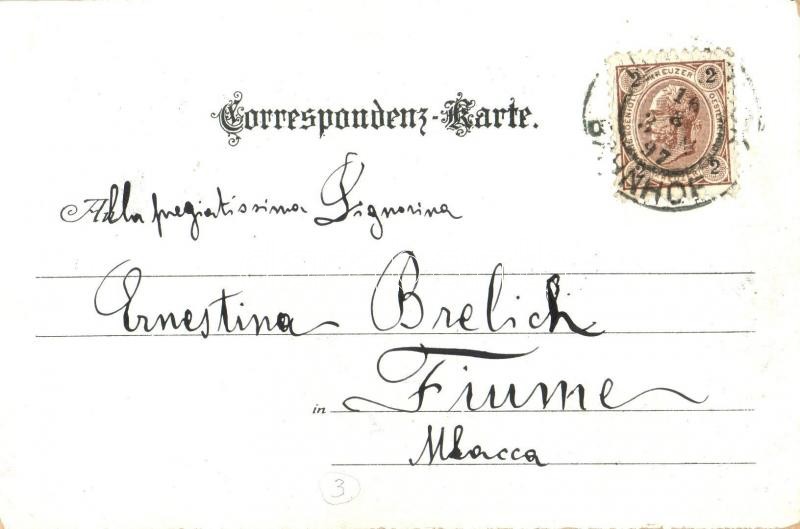 Correspondenz-Karte.
2 KREUZER 2
16
8
97
BAHNHOF
2 2
Alla pregiatissima Signorina
Ernestina Brelich
in Fiume
Mlacca
3